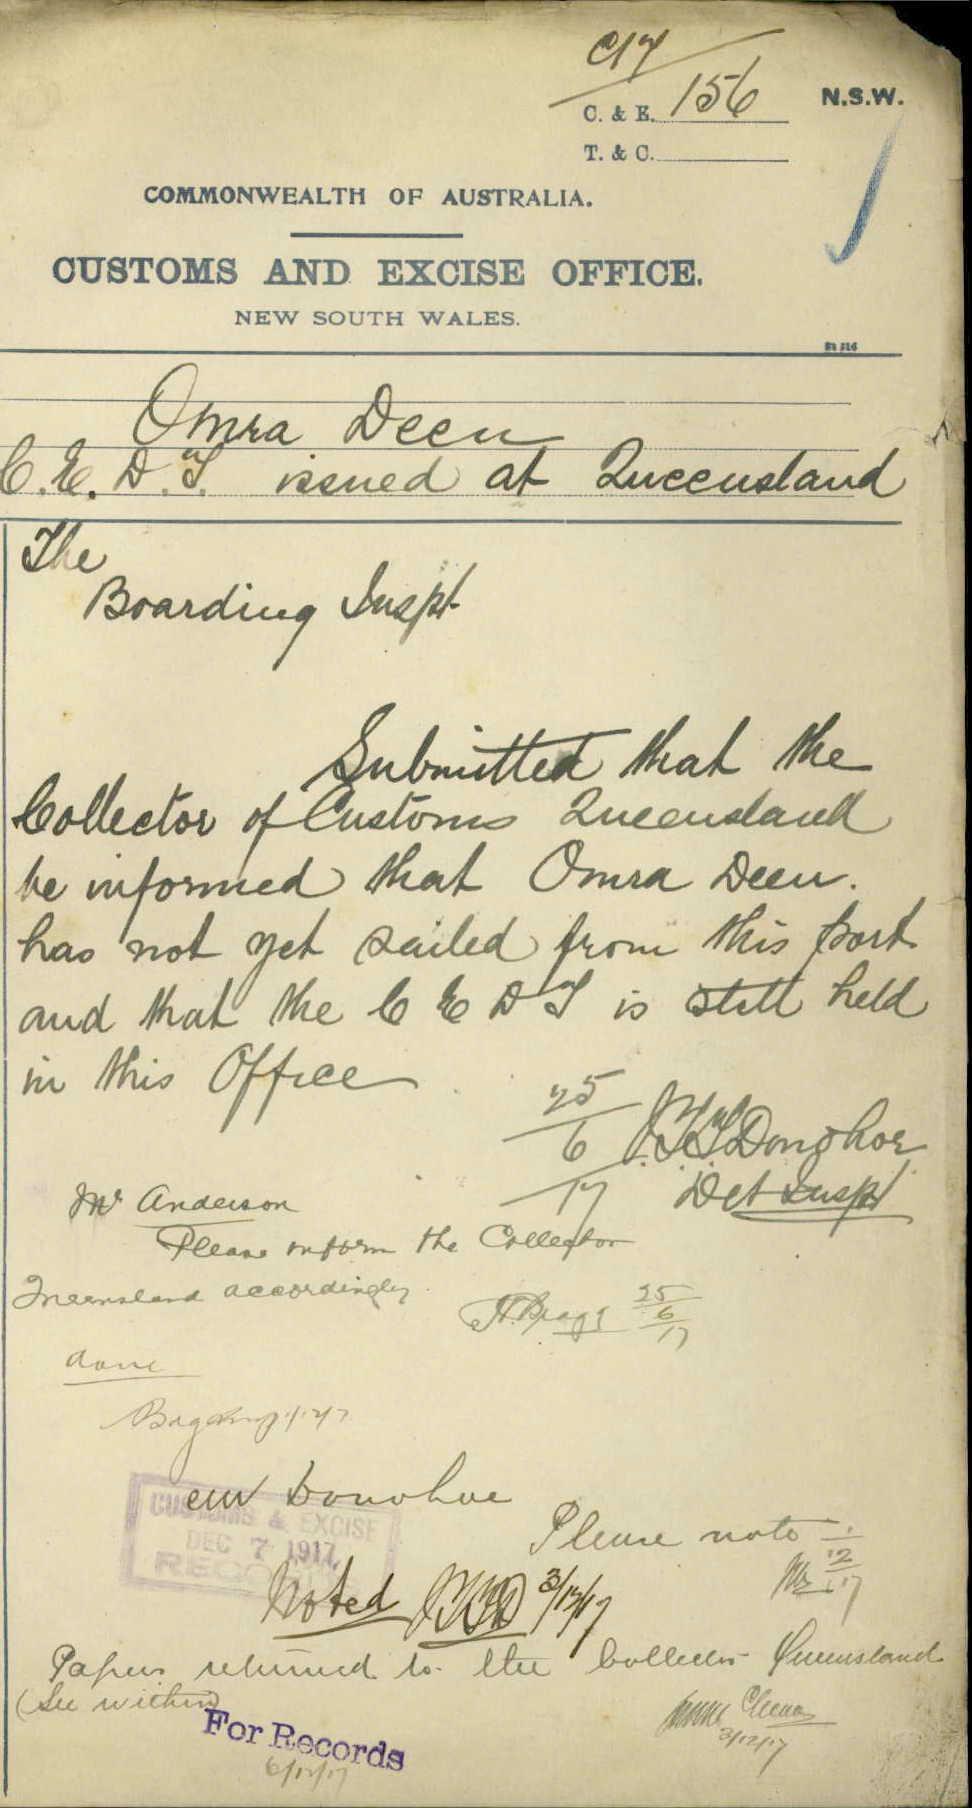 C17
C. & E. 156
N.S.W.
T. & C.
COMMONWEALTH OF AUSTRALIA.
CUSTOMS AND EXCISE OFFICE.
NEW SOUTH WALES.
Omra Deen
C.E.D.T. issued at Queensland
The
Boarding Inspt
Submitted that the
Collector of Customs Queensland
be informed that Omra Deen.
has not yet sailed from this port
and that the C E D T is still held
in this Office
25/6/17 Donohoe
Det Inspt
Mr Anderson
Please inform the Collector
Queensland accordingly
25/6/17
done
Donohoe
CUSTOMS & EXCISE
DEC 7 1917
RECORDS
Please note
1/12/17
Noted 3/12/17
Papers returned to the Collector Queensland
(See within)
3/12/17
For Records
6/12/17